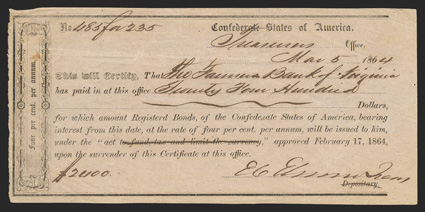 No. 485 for 235
Confederate States of America.
Treasurers Office,
Mar 5 1864
This will Certify, That The Farmers Bank of Virginia
has paid in at this office Twenty Four Hundred
Dollars,
for which amount Registerd Bonds, of the Confederate States of America, bearing
interest from this date, at the rate of four per cent. per annum, will be issued to him,
under the "act to fund, tax and limit the currency," approved February 17, 1864,
upon the surrender of this Certificate at this office.
$2400. E C Elmore Treas
Depositary.
Four per cent. per annum.